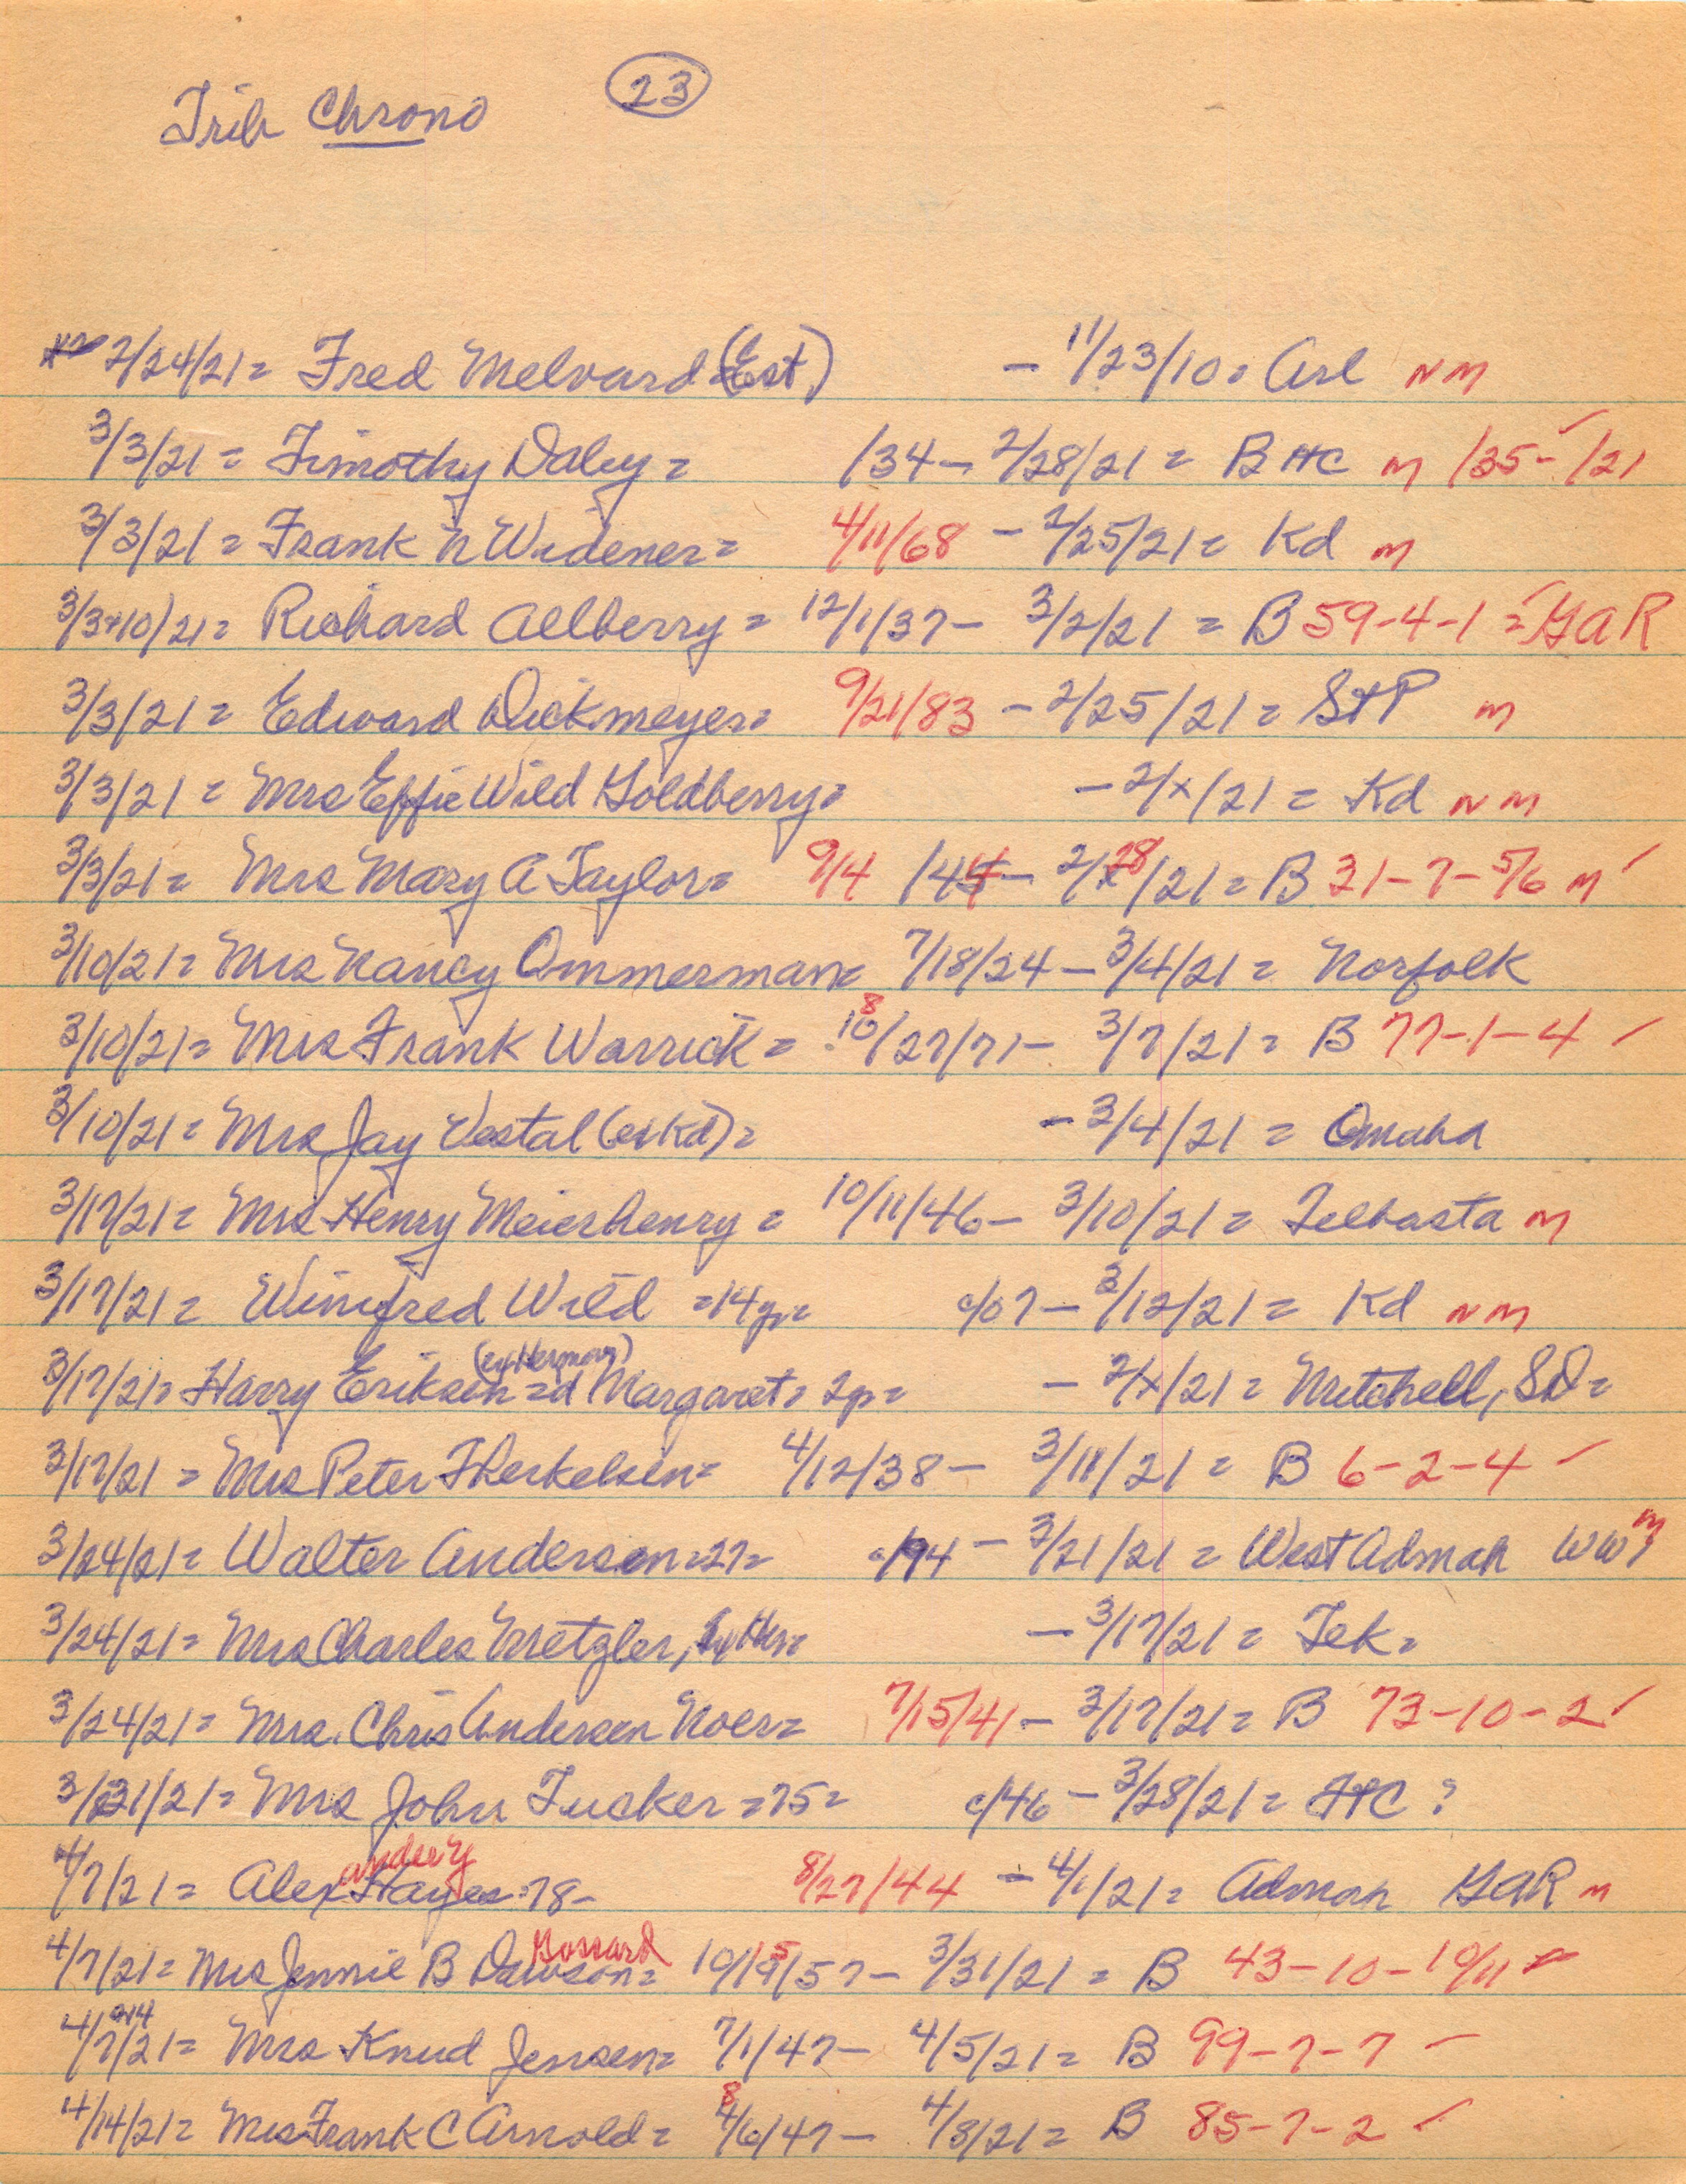 Trib Chrono 23
2/24/21= Fred Melvard (Est.) - 11/23/10= Arl NM
3/3/21= Timothy Daley= /34- 2/28/21= B HC M /35- /21
3/3/21= Frank N Widener= 4/11/68 - 2/25/21= Kd M
3/3+10/21= Richard Allberry= 12/1/37- 3/2/21= B 59-4-1= GAR
3/3/21= Edward Dickmeyer= 9/21/83 - 2/25/21= StP M
3/3/21= Mrs Effie Wild Goldberry= - 2/x/21= Kd NM
3/3/21= Mrs Mary A Taylor= 9/4 /44- 2/28/21= B 31-7-5/6 M
3/10/21= Mrs Nancy Ommerman= 7/18/24- 3/4/21= Norfolk
3/10/21= Mrs Frank Warrick= 8/27/71- 3/7/21= B 77-1-4
3/10/21= Mrs Jay Vestal (exKd)= - 3/4/21= Omaha
3/17/21= Mrs Henry Meierhenry= 10/11/46- 3/10/21= Telbasta M
3/17/21= Winifred Wild =14y= c/07- 3/12/21= Kd NM
3/17/21= Harry Eriksen (exHerman) =d Margaret= 2p= - 2/x/21= Mitchell, SD=
3/17/21= Mrs Peter Therkelsen= 4/12/38- 3/11/21= B 6-2-4
3/24/21= Walter Andersen=27= c/94- 3/21/21= West Admah WW? M
3/24/21= Mrs Charles Metzler, - 3/17/21= Tek=
3/24/21= Mrs. Chris Andersen Noer= 7/15/41- 3/17/21= B 73-10-2
3/31/21= Mrs John Tucker=75= c/46- 3/28/21= HC?
4/7/21= Alexander Y Hayes=78- 8/27/44 - 4/1/21= Admah GAR M
4/7/21= Mrs Jennie B Dawson= Gossard 10/15/57- 3/31/21= B 43-10-10/11
4/7+14/21= Mrs Knud Jensen= 7/1/47- 4/5/21= B 99-7-7
4/14/21= Mrs Frank C Arnold= 8/6/47- 4/8/21= B 85-7-2